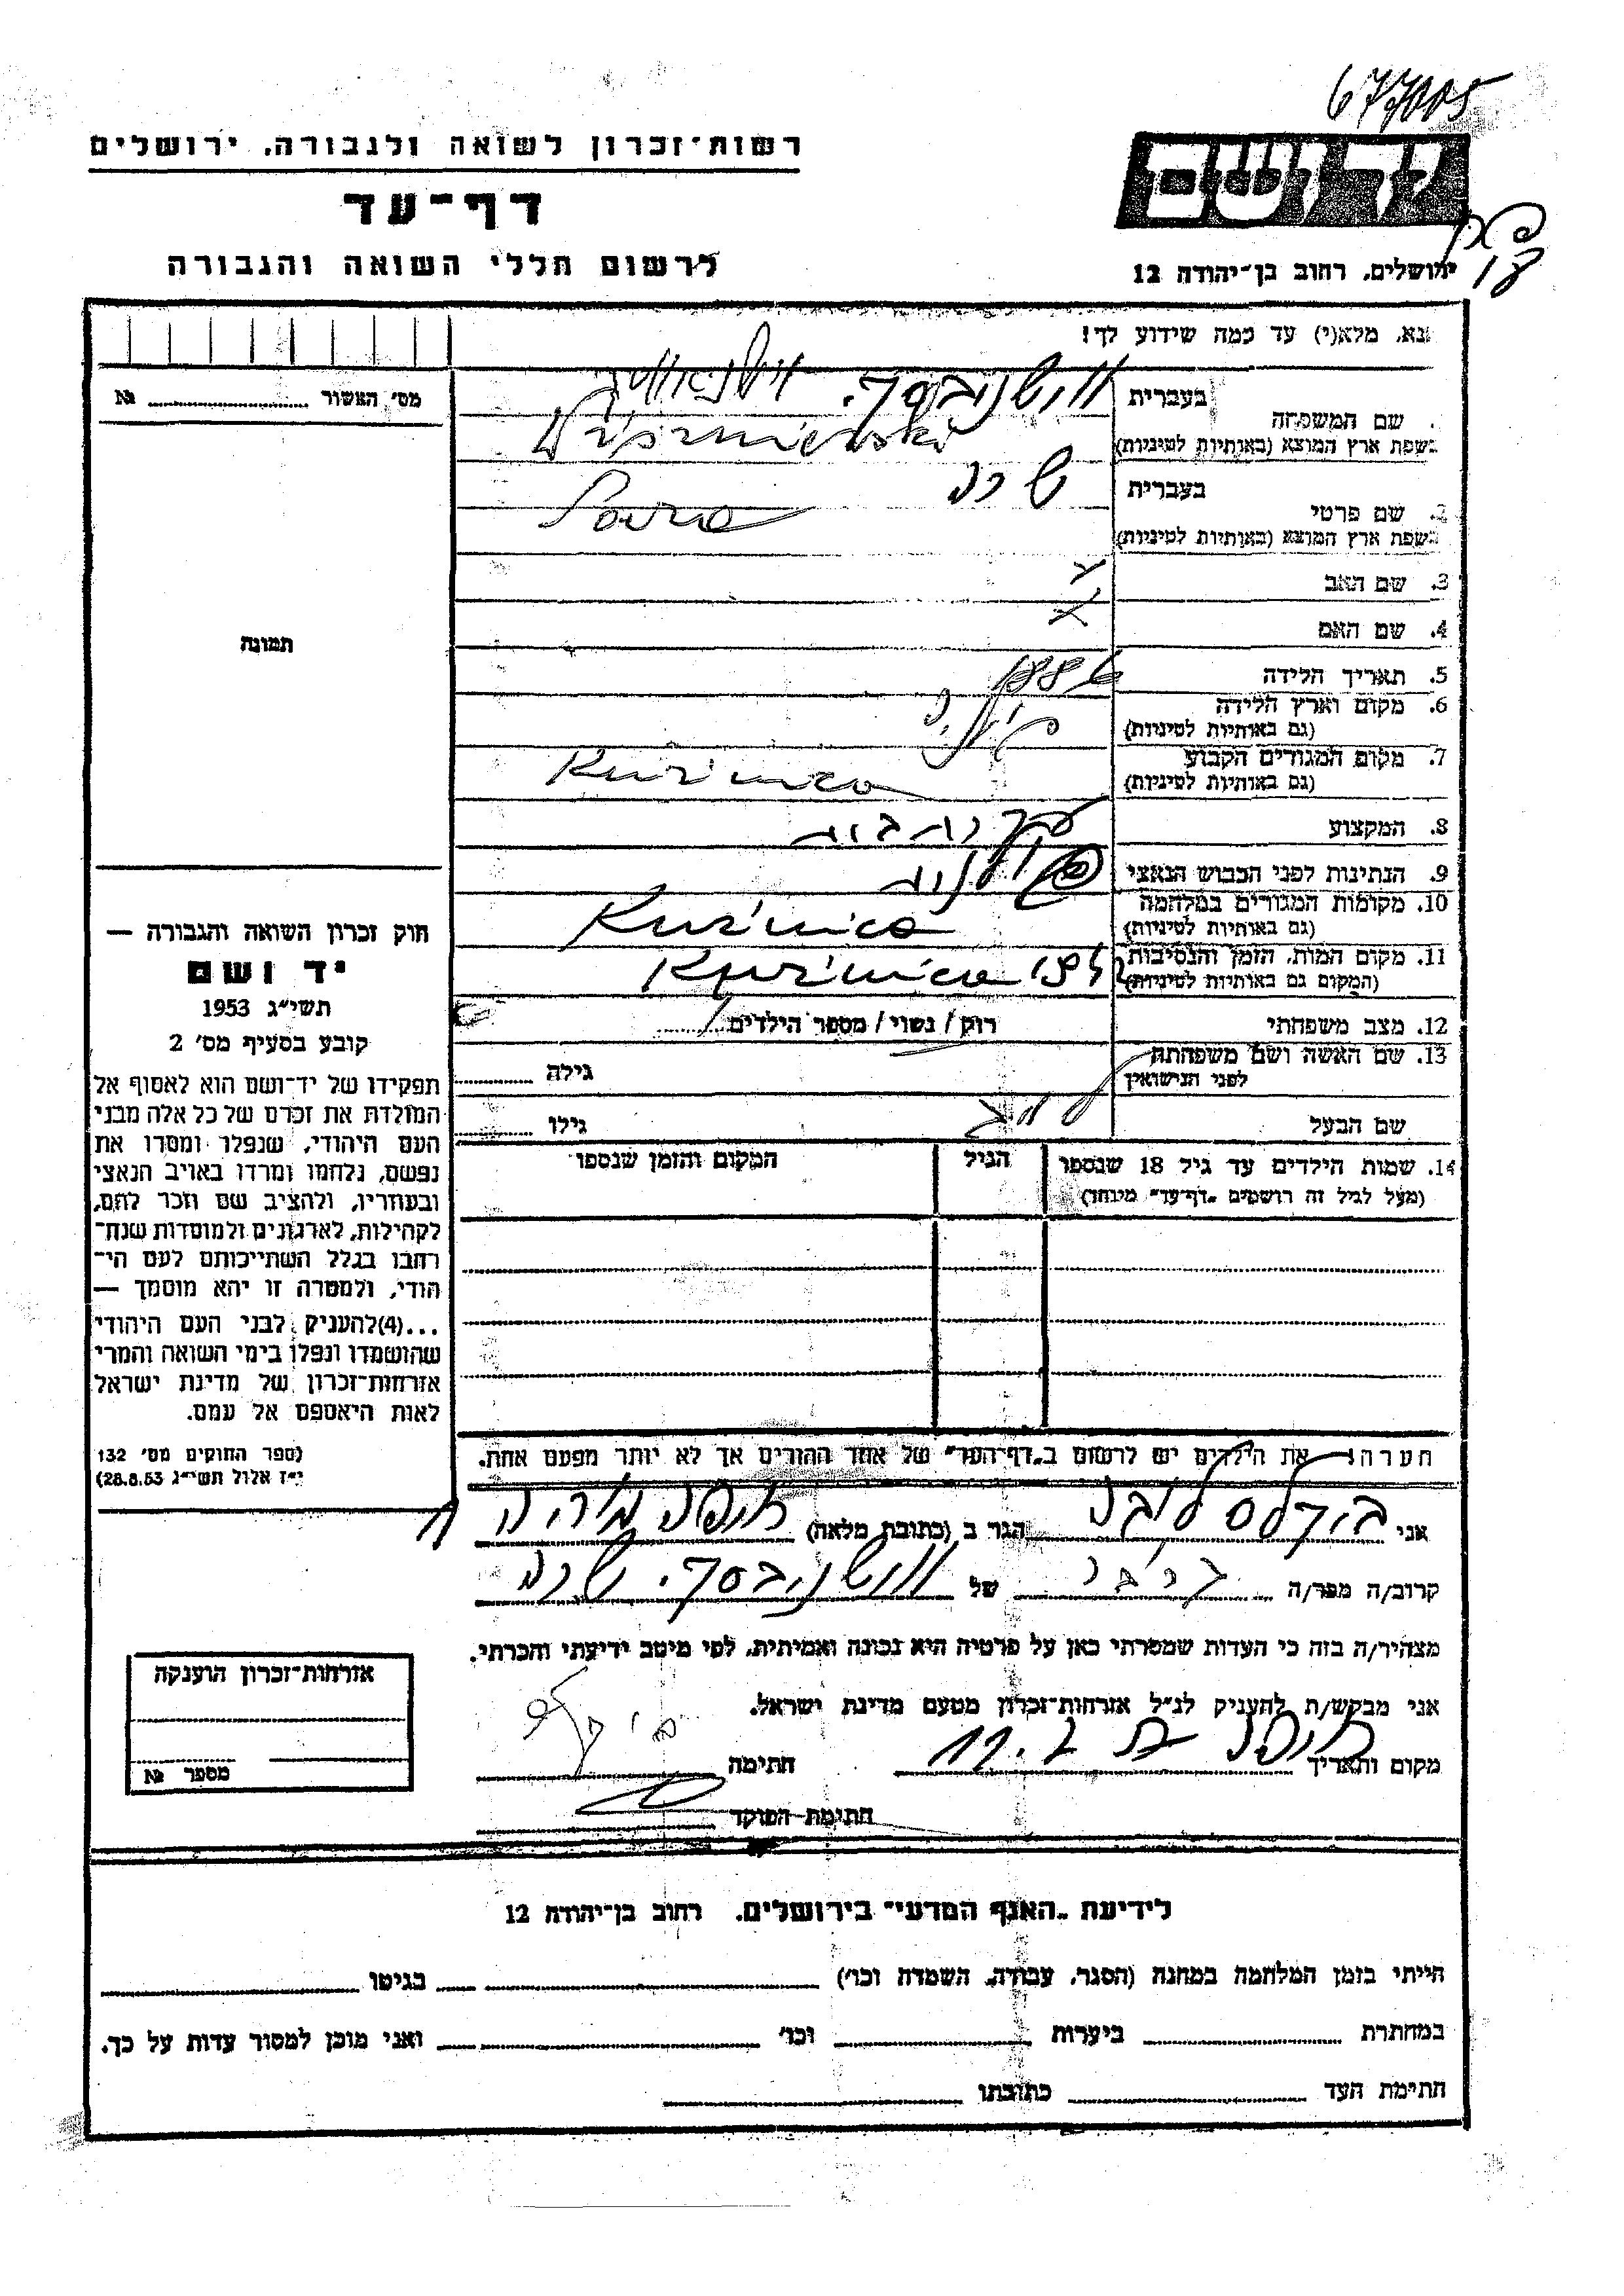 677005
רשות־זכרון לשואה ולגבורה. ירושלים
דף־עד
לרשום חללי השואה והגבורה
יד ושם
ירושלים, רחוב בן־יהודה 12
נא, מלא(י) עד כמה שידוע לך!
מס׳ האשור № 
תמונה
בעברית
שם המשפחה
בשפת ארץ המוצא (באותיות לטיניות)
ווישנובסקי.
Wiszniewski
בעברית שרה
2. שם פרטי
בשפת ארץ המוצא (באותיות לטיניות) Sara
3. שם האב
4. שם האם
5. תאריך הלידה 1886
6. מקום וארץ הלידה
(גם באותיות לטיניות)
פולניה
7. מקום המגורים הקבוע
(גם באותיות לטיניות)
Kuźnica
8. המקצוע עקרת בית
9. הנתינות לפני הכבוש הנאצי פולנית
10. מקומות המגורים במלחמה
(גם באותיות לטיניות) Kuźnica
11. מקום המות, הזמן והנסיבות
(המקום גם באותיות לטיניות) Kuźnica
12. מצב משפחתי רוק / נשוי / מספר הילדים
13. שם האשה ושם משפחתה
לפני הנישואין
גילה
שם הבעל גילו
14. שמות הילדים עד גיל 18 שנספו הגיל המקום והזמן שנספו
(מעל לגיל זה רושמים „דף־עד” מיוחד)
הערה: את הילדים יש לרשום ב„דף־העד” של אחד ההורים אך לא יותר מפעם אחת.
חוק זכרון השואה והגבורה —
יד ושם
תשי״ג 1953
קובע בסעיף מס׳ 2
תפקידו של יד־ושם הוא לאסוף אל
המולדת את זכרם של כל אלה מבני
העם היהודי, שנפלו ומסרו את
נפשם, נלחמו ומרדו באויב הנאצי
ובעוזריו, ולהציב שם וזכר להם,
לקהילות, לארגונים ולמוסדות שנח־
רבו בגלל השתייכותם לעם הי־
הודי, ולמטרה זו יהא מוסמך —
...(4) להעניק לבני העם היהודי
שהושמדו ונפלו בימי השואה והמרי
אזרחות־זכרון של מדינת ישראל
לאות היאספם אל עמם.
(ספר החוקים מס׳ 132
י״ז אלול תשי״ג 28.8.53)
אני הגר ב (כתובת מלאה) חיפה
קרוב/ה מכר/ה של ווישנובסקי. שרה
מצהיר/ה בזה כי העדות שמסרתי כאן על פרטיה היא נכונה ואמיתית, לפי מיטב ידיעתי והכרתי.
אני מבקש/ת להעניק לנ״ל אזרחות־זכרון מטעם מדינת ישראל.
מקום ותאריך חיפה חתימה
חתימת הפוקד
אזרחות־זכרון הוענקה
מספר №
לידיעת „האגף המדעי” בירושלים. רחוב בן־יהודה 12
הייתי בזמן המלחמה במחנה (הסגר, עבודה, השמדה וכו׳) בגיטו
במחתרת ביערות וכו׳ ואני מוכן למסור עדות על כך.
חתימת העד כתובתו